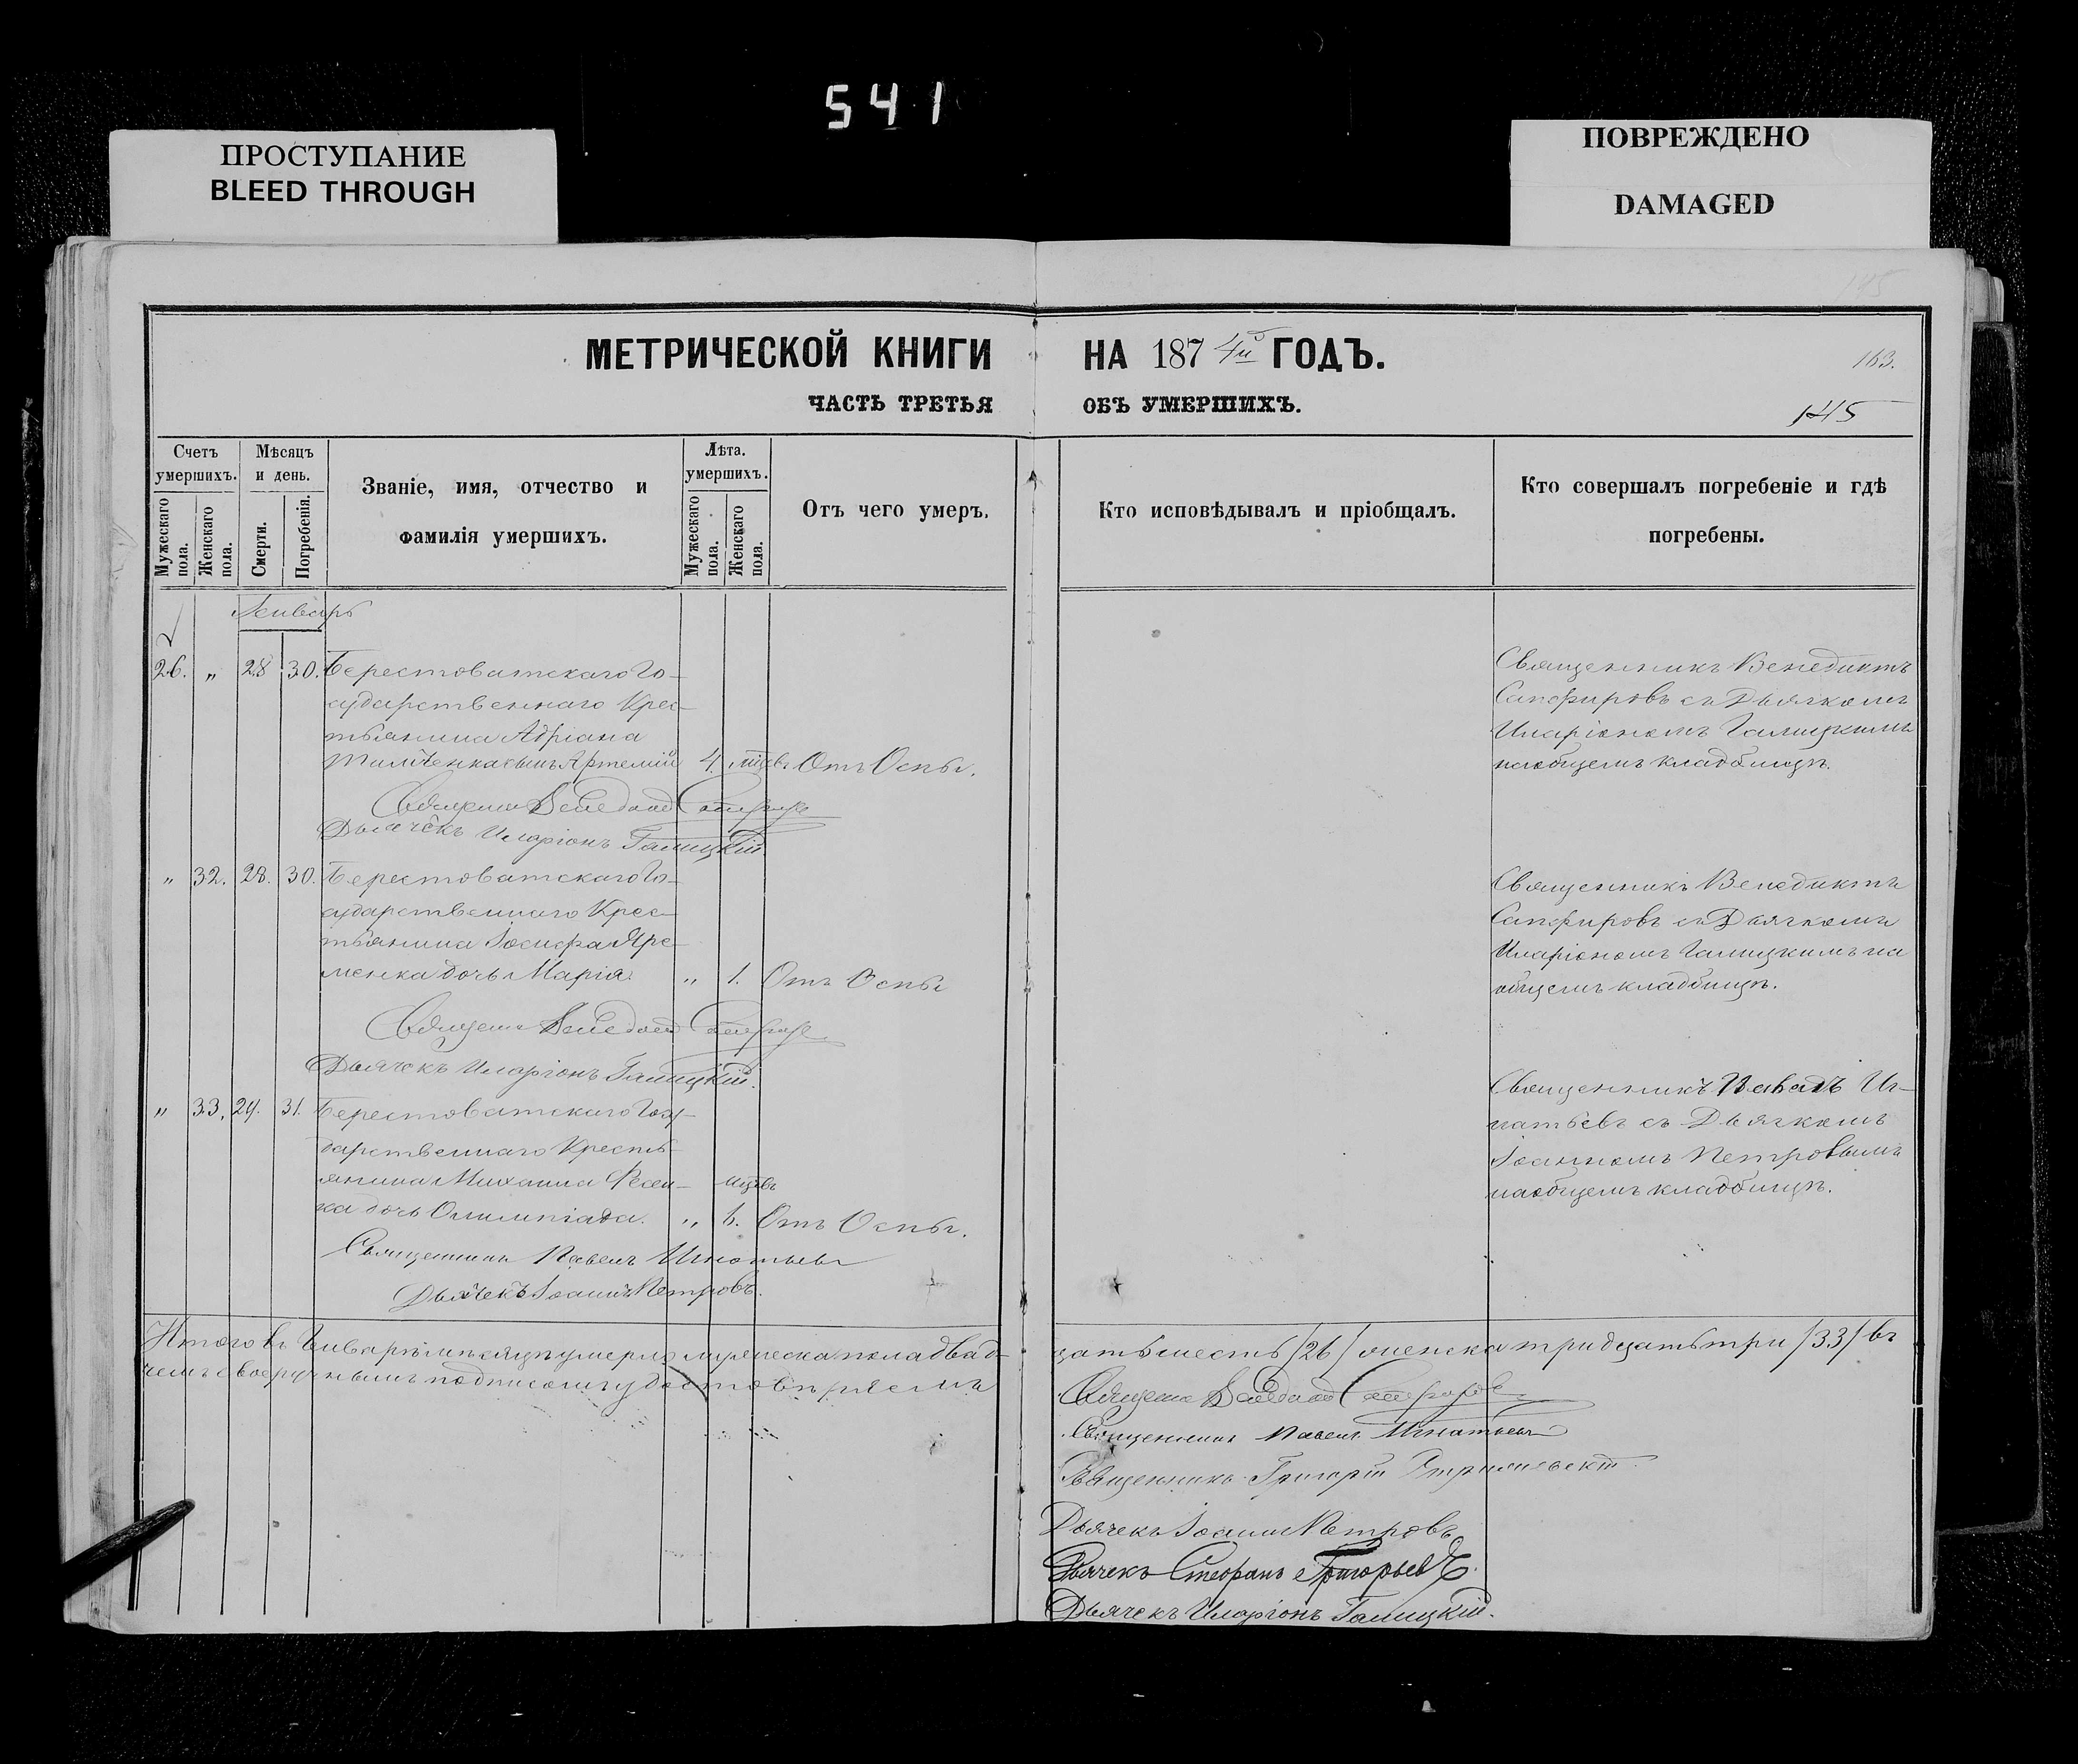 541
ПРОСТУПАНИЕ
BLEED THROUGH
ПОВРЕЖДЕНО
DAMAGED
145
МЕТРИЧЕСКОЙ КНИГИ НА 1874й ГОДЪ.
163.
ЧАСТЬ ТРЕТЬЯ ОБЪ УМЕРШИХЪ.
145
Счетъ умершихъ.
Мужескаго пола.
Женскаго пола.
Мѣсяцъ и день.
Смерти.
Погребенія.
Званіе, имя, отчество и
фамилія умершихъ.
Лѣта. умершихъ.
Мужескаго пола.
Женскаго пола.
Отъ чего умеръ.
Кто исповѣдывалъ и пріобщалъ.
Кто совершалъ погребеніе и гдѣ
погребены.
Генварь
26. „ 28 30. Берестоватскаго Го-
сударственнаго Крес-
тьянина Адріана
сынъ Артемій 4. Отъ Оспы.
Священникъ Венедиктъ
Сапфировъ съ Дьячкомъ
Иларіономъ Галицкимъ
на общемъ кладбищѣ.
Священникъ Венедиктъ Сапфировъ
Дьячекъ Иларіонъ Галицкій.
„ 32. 28. 30. Берестоватскаго Го-
сударственнаго Крес-
тьянина Іосифа Яре-
менка дочь Марія. „ 1. Отъ Оспы
Священникъ Венедиктъ
Сапфировъ съ Дьячкомъ
Иларіономъ Галицкимъ на
общемъ кладбищѣ.
Священникъ Венедиктъ Сапфировъ
Дьячекъ Иларіонъ Галицкій.
„ 33. 29. 31. Берестоватскаго Госу-
дарственнаго Кресть-
янина Михаила Фесен-
ка дочь Олимпіада. „ 6. мцѣвъ Отъ Оспы.
Священникъ Павелъ Иг-
натьевъ съ Дьячкомъ
Іоанномъ Петровымъ
на общемъ кладбищѣ.
Священникъ Павелъ Игнатьевъ
Дьячекъ Іоаннъ Петровъ.
Итого въ Генварѣ мѣсяцѣ умерло мужеска пола двад-
цать шесть /26/ женска тридцать три /33/ въ
чемъ своеручнымъ подписомъ удостовѣряемъ
Священникъ Венедиктъ Сапфировъ
Священникъ Павелъ Игнатьевъ
Священникъ Григорій
Дьячекъ Іоаннъ Петровъ
Дьячекъ Стефанъ Григорьевъ.
Дьячекъ Иларіонъ Галицкій.